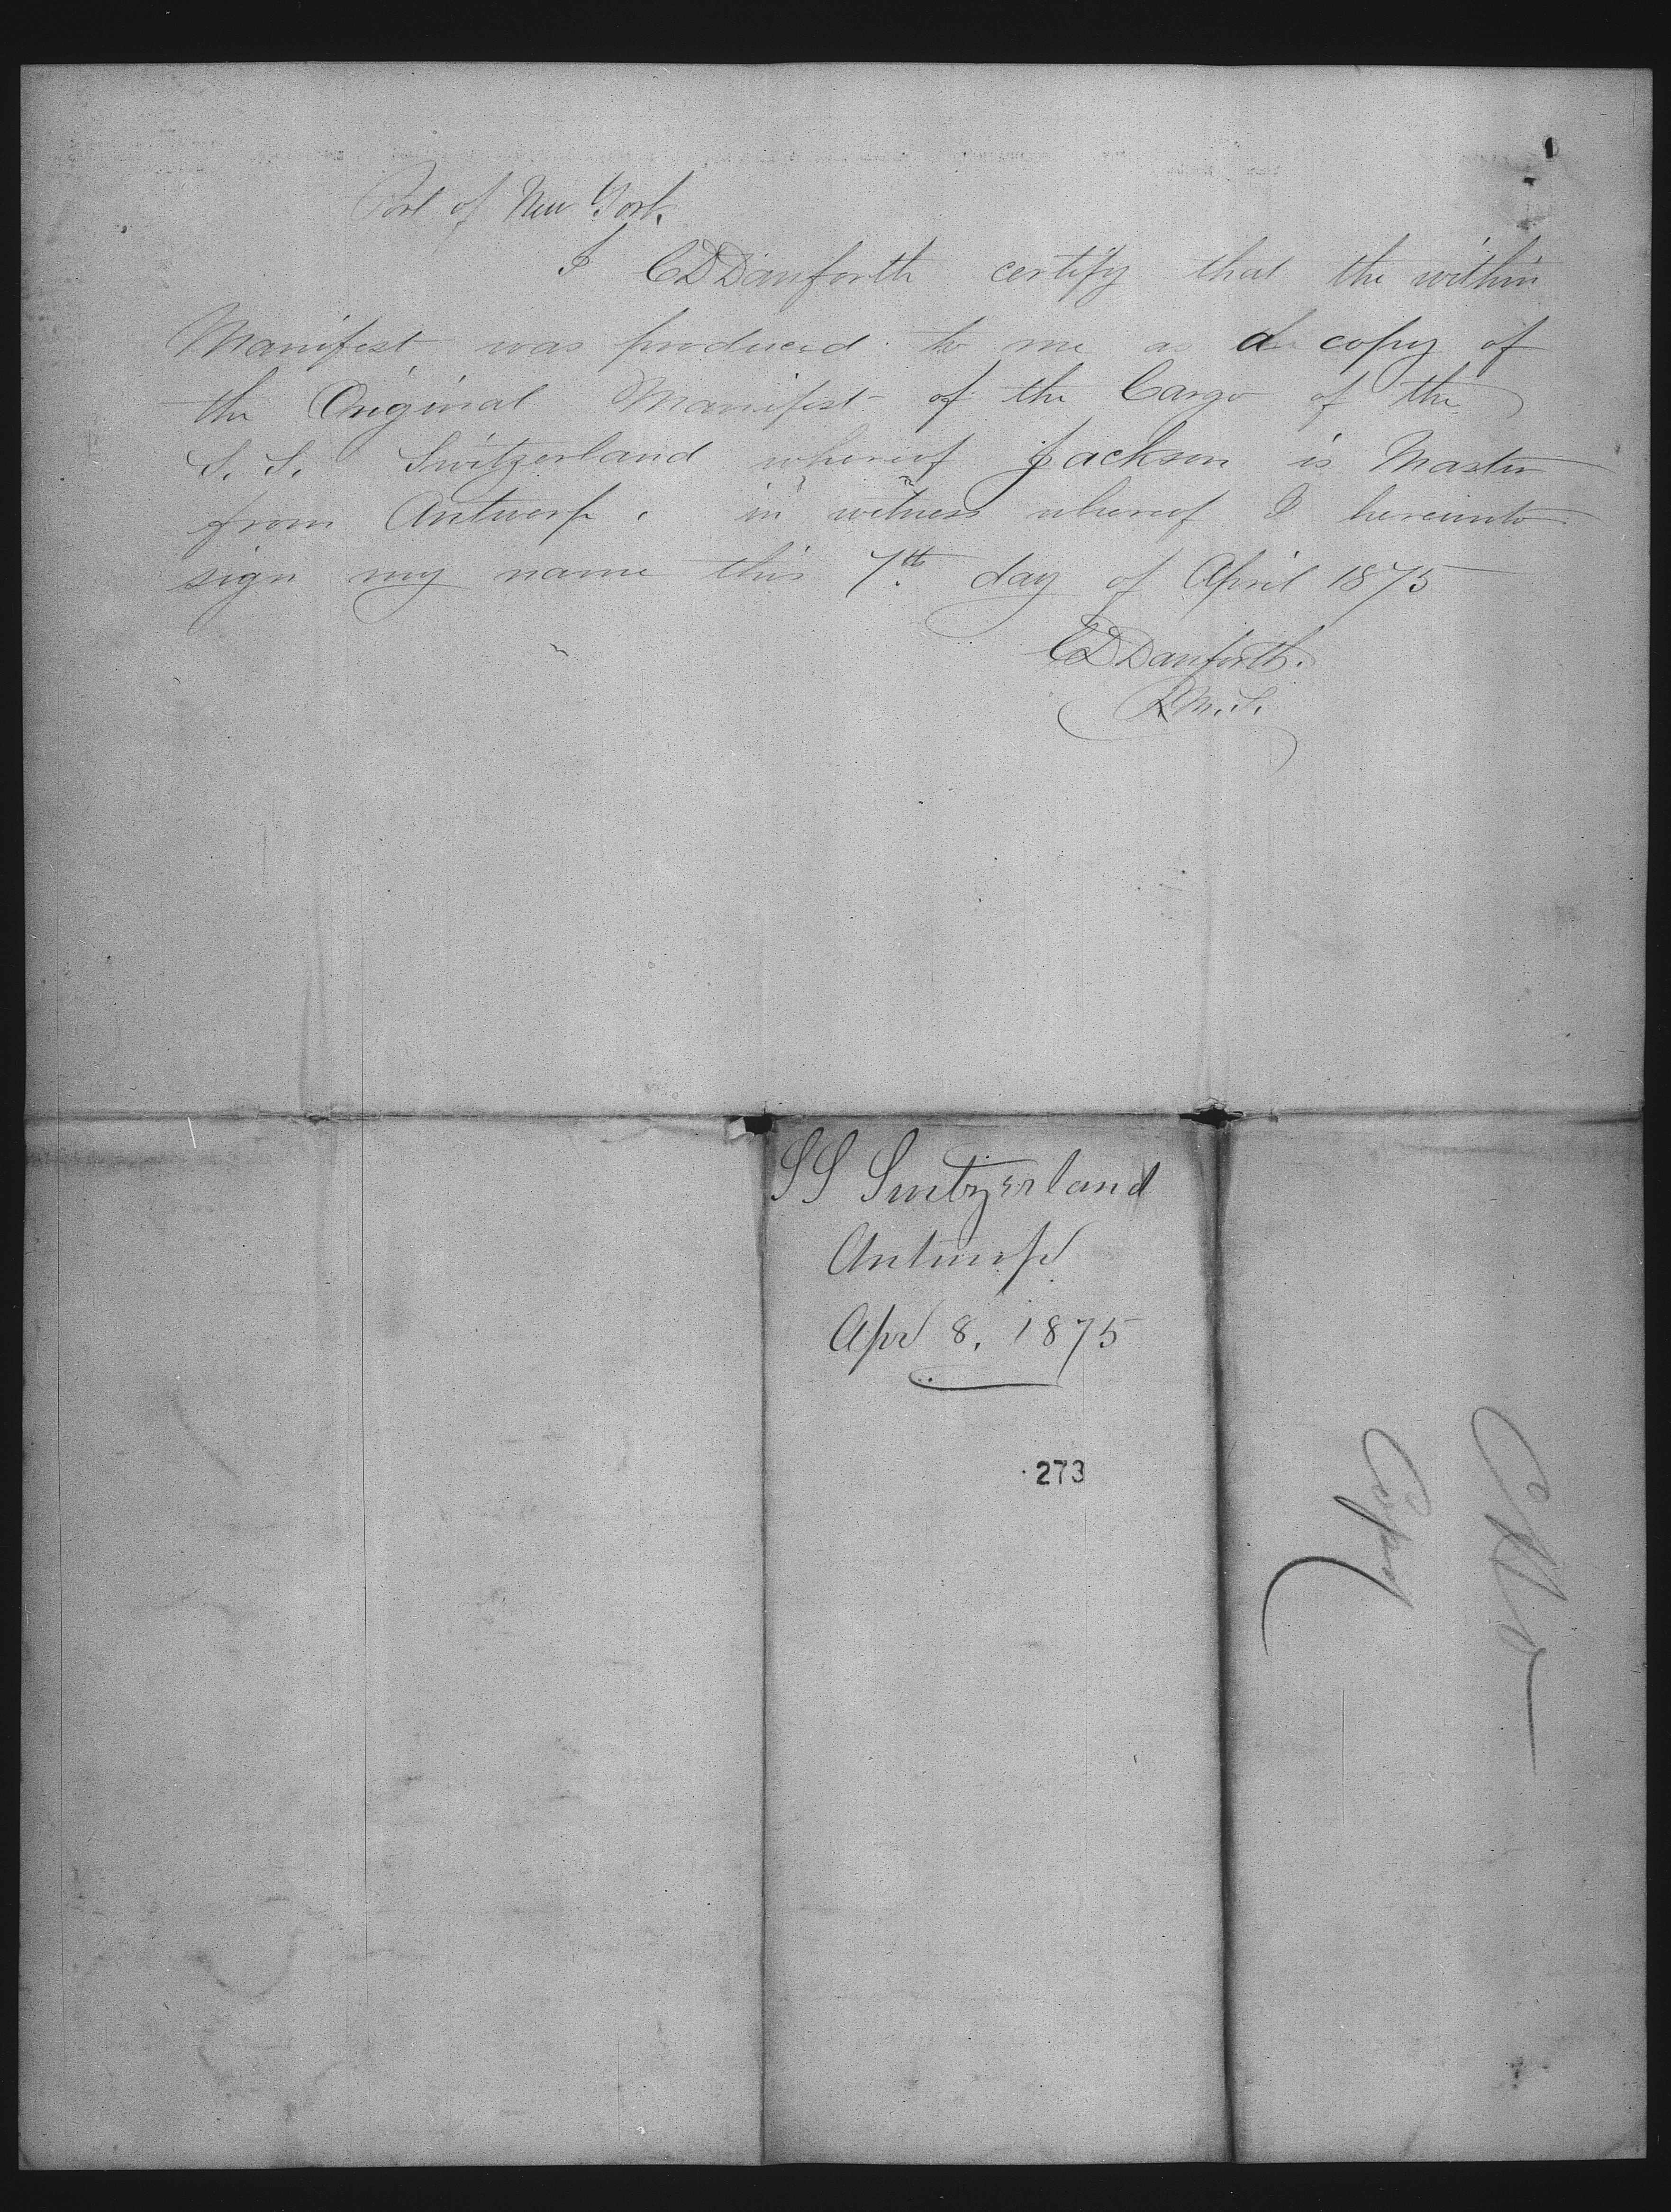 Port of New York.
I CD Danforth certify that the within
Manifest was produced to me as a copy of
the Original Manifest of the Cargo of the
S. S. Switzerland whereof Jackson is Master
from Antwerp. in witness whereof I hereunto
sign my name this 7th day of April 1875
CD Danforth.
SS Switzerland
Antwerp
Apr 8, 1875
273
Copy